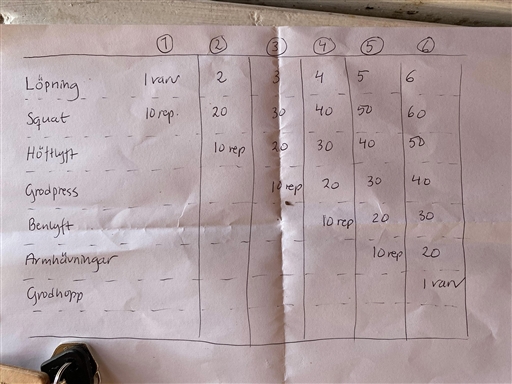 ① ② ③ ④ ⑤ ⑥
Löpning 1 varv 2 3 4 5 6
Squat 10 rep. 20 30 40 50 60
Höftlyft 10 rep 20 30 40 50
Grodpress 10 rep 20 30 40
Benlyft 10 rep 20 30
Armhävningar 10 rep 20
Grodhopp 1 varv